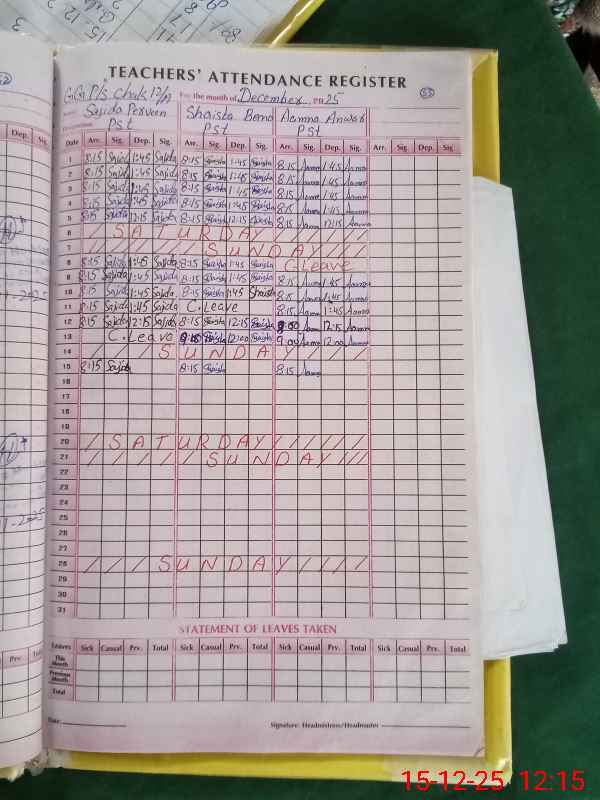 TEACHERS' ATTENDANCE REGISTER
GG P/s Chak 12/A For the month of December, 2025
Name Sajida Perveen Shaista Bano Aamna Anwar
Pst Pst Pst
Date Arr. Sig. Dep. Sig. Arr. Sig. Dep. Sig. Arr. Sig. Dep. Sig. Arr. Sig. Dep. Sig.
1 8:15 Sajida 1:45 Sajida 8:15 Shaista 1:45 Shaista 8:15 Aamna 1:45 Aamna
2 8:15 Sajida 1:45 Sajida 8:15 Shaista 1:45 Shaista 8:15 Aamna 1:45 Aamna
3 8:15 Sajida 1:45 Sajida 8:15 Shaista 1:45 Shaista 8:15 Aamna 1:45 Aamna
4 8:15 Sajida 1:45 Sajida 8:15 Shaista 1:45 Shaista 8:15 Aamna 1:45 Aamna
5 8:15 Sajida 12:15 Sajida 8:15 Shaista 12:15 Shaista 8:15 Aamna 12:15 Aamna
6 SATURDAY
7 SUNDAY
8 8:15 Sajida 1:45 Sajida 8:15 Shaista 1:45 Shaista C.Leave
9 8:15 Sajida 1:45 Sajida 8:15 Shaista 1:45 Shaista 8:15 Aamna 1:45 Aamna
10 8:15 Sajida 1:45 Sajida 8:15 Shaista 1:45 Shaista 8:15 Aamna 1:45 Aamna
11 8:15 Sajida 1:45 Sajida C.Leave 8:15 Aamna 1:45 Aamna
12 8:15 Sajida 12:15 Sajida 8:15 Shaista 12:15 Shaista 8:00 Aamna 12:15 Aamna
13 C.Leave 9:15 Shaista 12:00 Shaista 9:00 Aamna 12:00 Aamna
14 SUNDAY
15 8:15 Sajida 8:15 Shaista 8:15 Aamna
16
17
18
19
20 SATURDAY
21 SUNDAY
22
23
24
25
26
27
28 SUNDAY
29
30
31
STATEMENT OF LEAVES TAKEN
Leaves Sick Casual Prv. Total Sick Casual Prv. Total Sick Casual Prv. Total Sick Casual Prv. Total
This Month
Previous Month
Total
Date: Signature: Headmistress/Headmaster
Dep. Sig.
Prv. Total
15-12-25 12:15